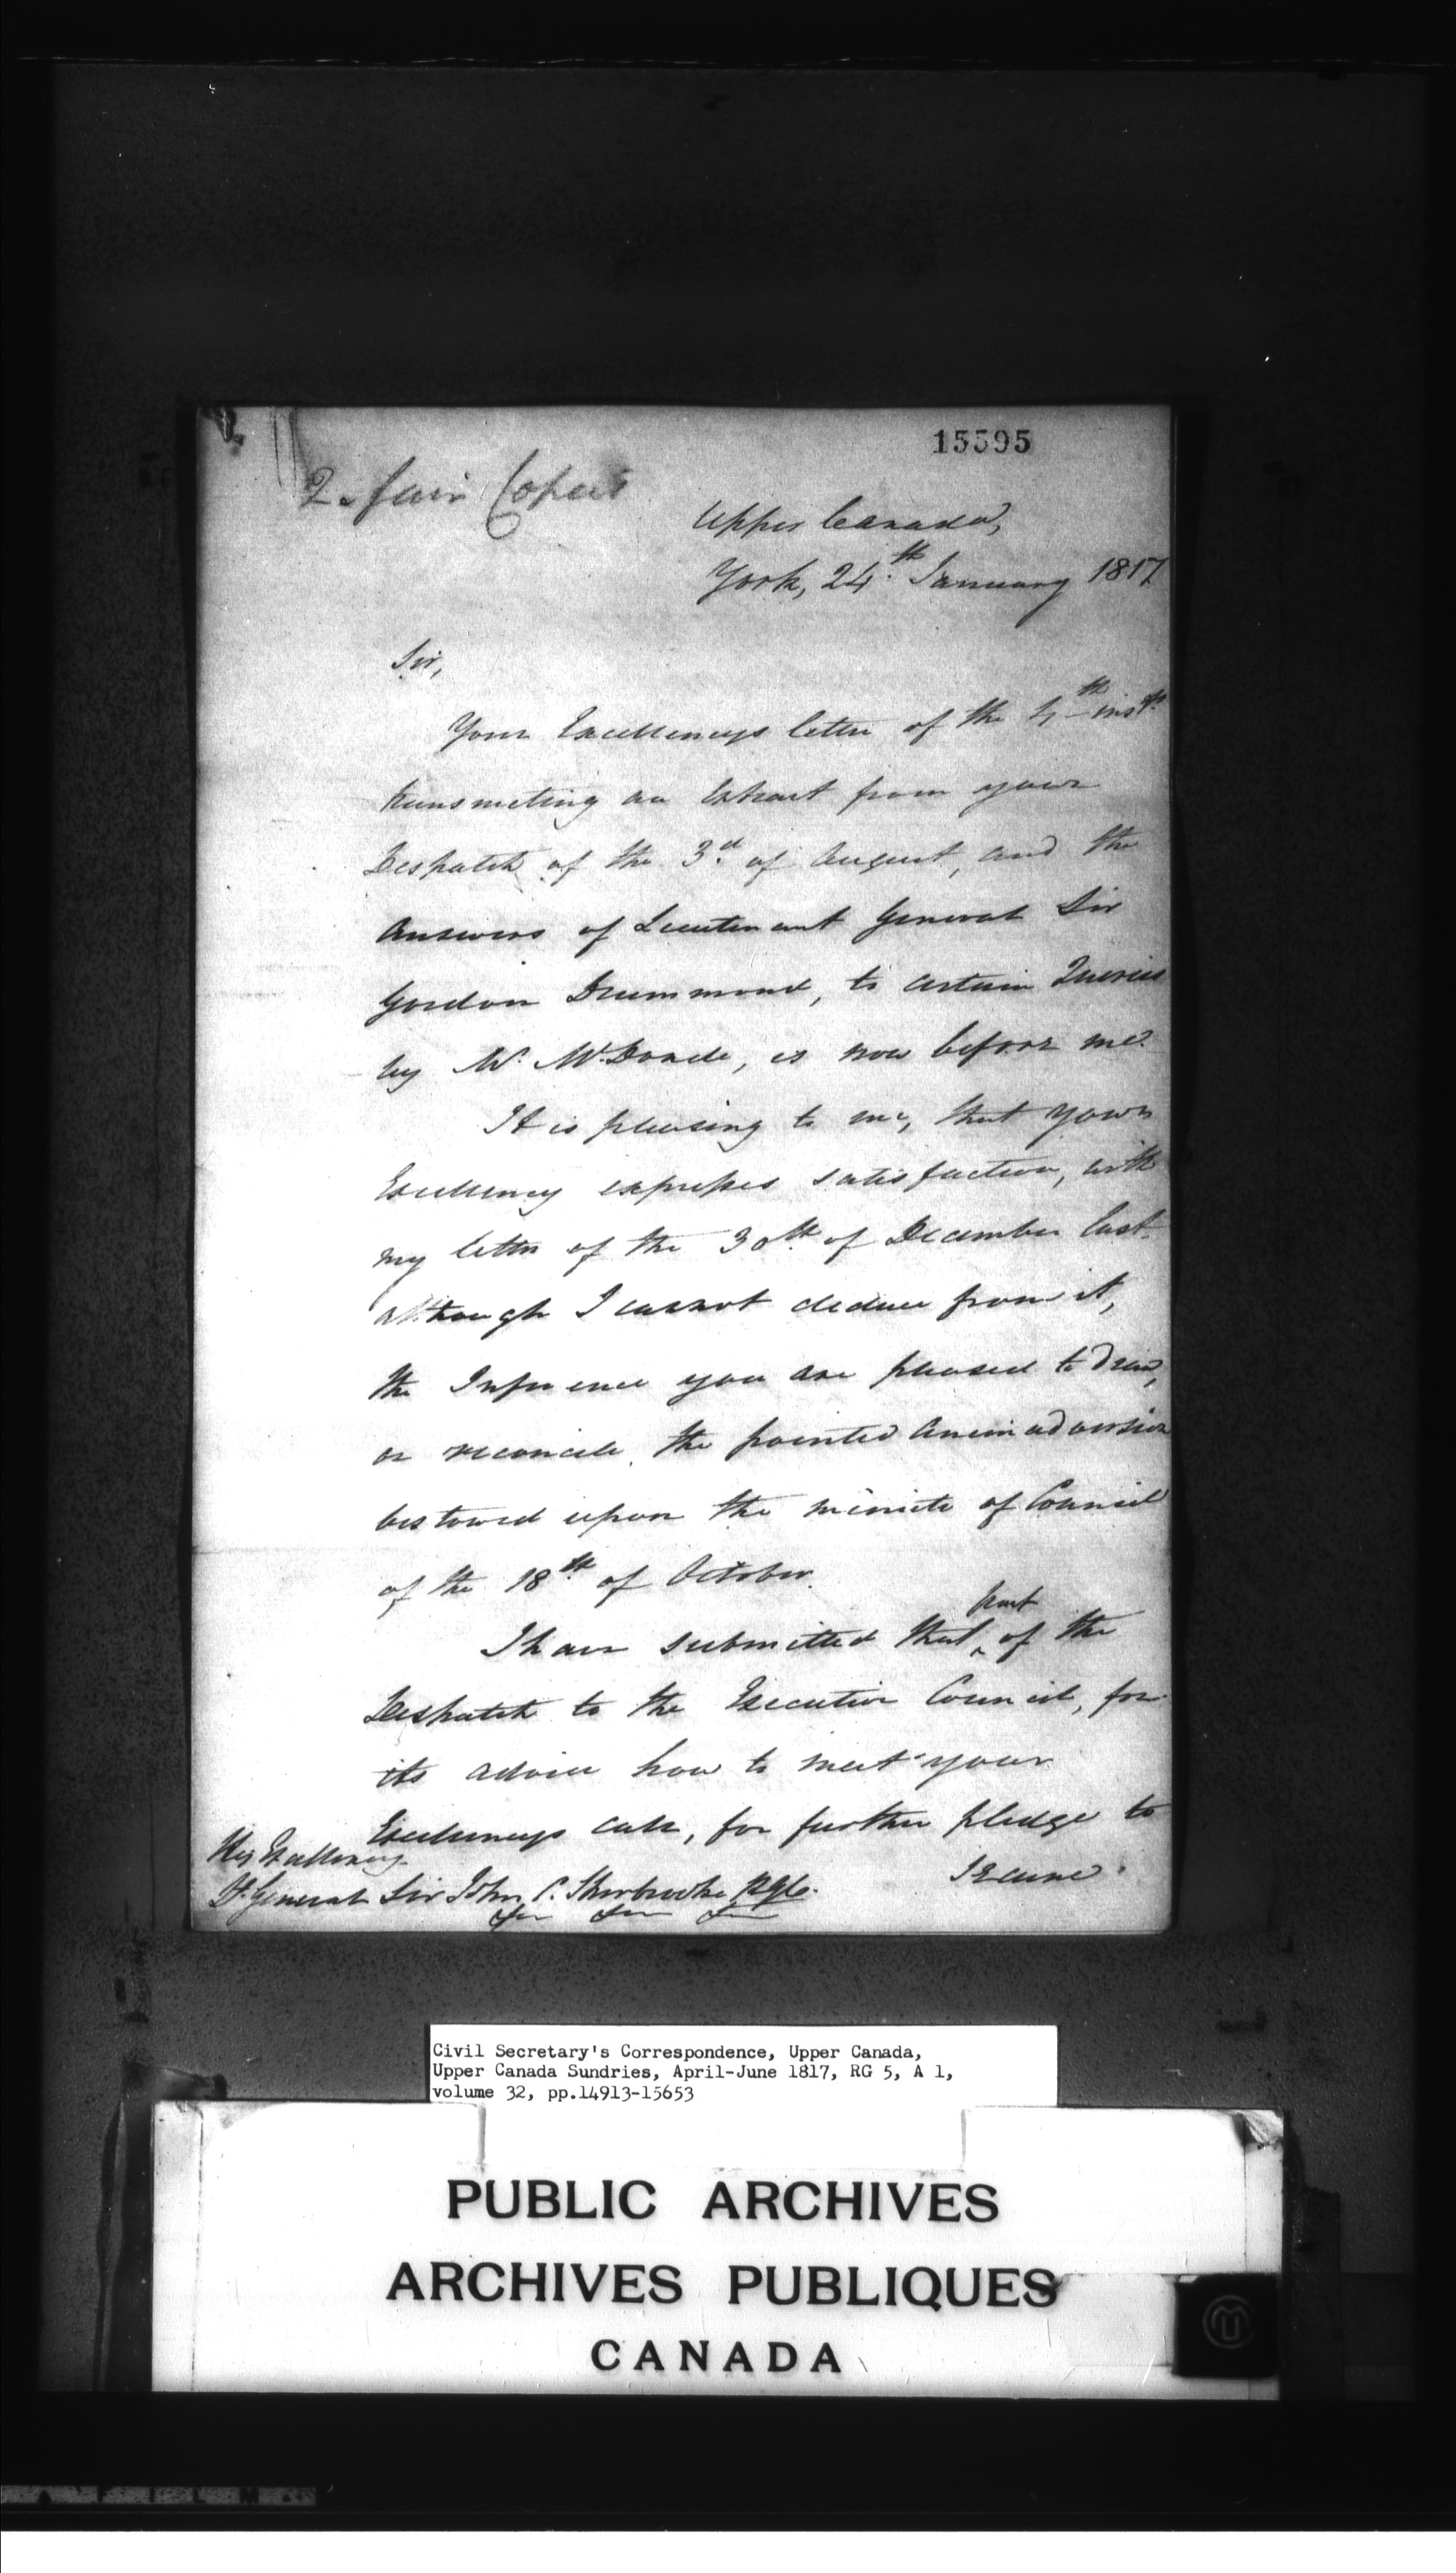 15595
2. fair Copies
Upper Canada,
York, 24.th January 1817
Sir,
Your Excellencys letter of the 4th inst.
transmeting an Extract from your
Despatch of the 3.d of August, and the
Answers of Lieutenant General Sir
Gordon Drummond, to certain Queries
by Mr. McDonele, is now before me.
It is pleasing to me, that your
Excellency expresses satisfaction, with
my letter of the 30th. of December last.
although I cannot deduce from it,
the Inference you are pleased to draw,
or reconcile the pointed animadversion
bestowed upon the minute of Council
of the 18th. of October.
part
I have submitted that ^ of the
Despatch to the Executive Council, for
its advice how to meet your
Excellencys call, for further pledge to
Secure
His Excellency
Lt. General Sir John C. Sherbrooke KGB.
Civil Secretary's Correspondence, Upper Canada,
Upper Canada Sundries, April-June 1817, RG 5, A 1,
volume 32, pp.14913-15653
PUBLIC ARCHIVES
ARCHIVES PUBLIQUES
CANADA